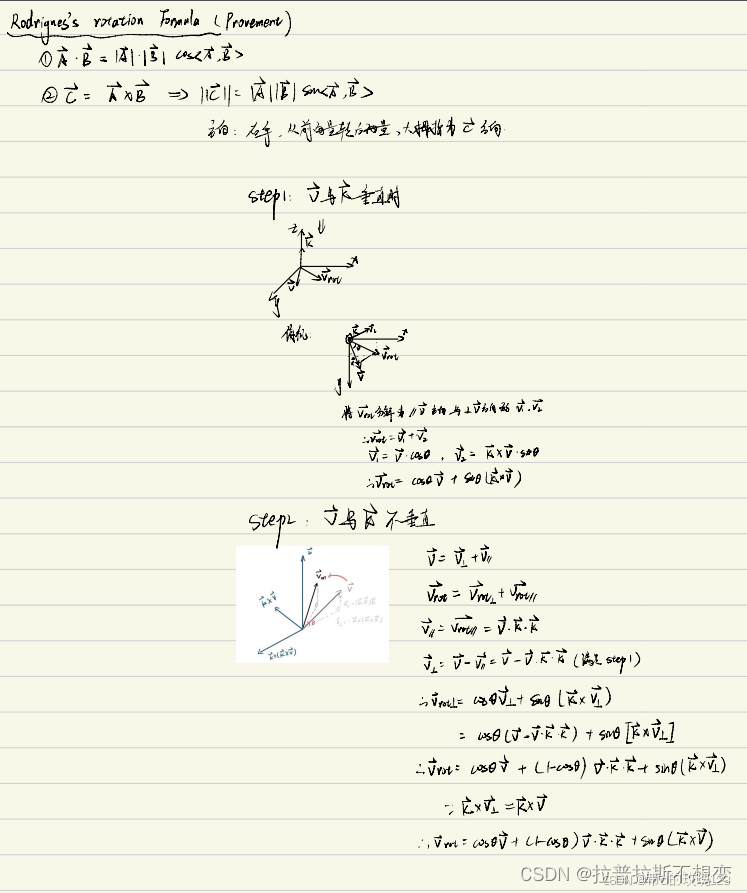 Rodrigues's rotation Formula (Provement)
① A⃗ · B⃗ = |A⃗|·|B⃗| cos<A⃗,B⃗>
② C⃗ = A⃗×B⃗ ⇒ ||C⃗|| = |A⃗||B⃗| sin<A⃗,B⃗>
方向: 右手,从前向量转后向量,大拇指为 C⃗ 方向.
step1: V⃗与K⃗垂直时
z
K⃗
x
V⃗
V⃗rot
y
俯视:
K⃗
V⃗₂
x
θ
V⃗rot
V⃗
y
将 V⃗rot分解为 // V⃗ 方向与⊥V⃗方向的 V⃗₁, V⃗₂
∴V⃗rot = V⃗₁+V⃗₂
V⃗₁ = V⃗·cosθ , V⃗₂ = K⃗×V⃗·sinθ
∴V⃗rot = cosθV⃗ + sinθ(K⃗×V⃗)
step2: V⃗与K⃗不垂直
K⃗
V⃗rot
V⃗
K⃗×V⃗
θ
K⃗×(K⃗×V⃗)
V⃗ = V⃗⊥+V⃗//
V⃗rot = V⃗rot⊥ + V⃗rot//
V⃗// = V⃗rot// = V⃗·K⃗·K⃗
V⃗⊥ = V⃗-V⃗// = V⃗-V⃗·K⃗·K⃗ (满足 step1)
∴V⃗rot⊥ = cosθV⃗⊥ + sinθ (K⃗×V⃗⊥)
= cosθ(V⃗-V⃗·K⃗·K⃗) + sinθ[K⃗×V⃗⊥]
∴V⃗rot = cosθV⃗ + (1-cosθ) V⃗·K⃗·K⃗ + sinθ(K⃗×V⃗⊥)
∵ K⃗×V⃗⊥ = K⃗×V⃗
∴V⃗rot = cosθV⃗ + (1-cosθ)V⃗·K⃗·K⃗ + sinθ(K⃗×V⃗)
CSDN @拉普拉斯不想变